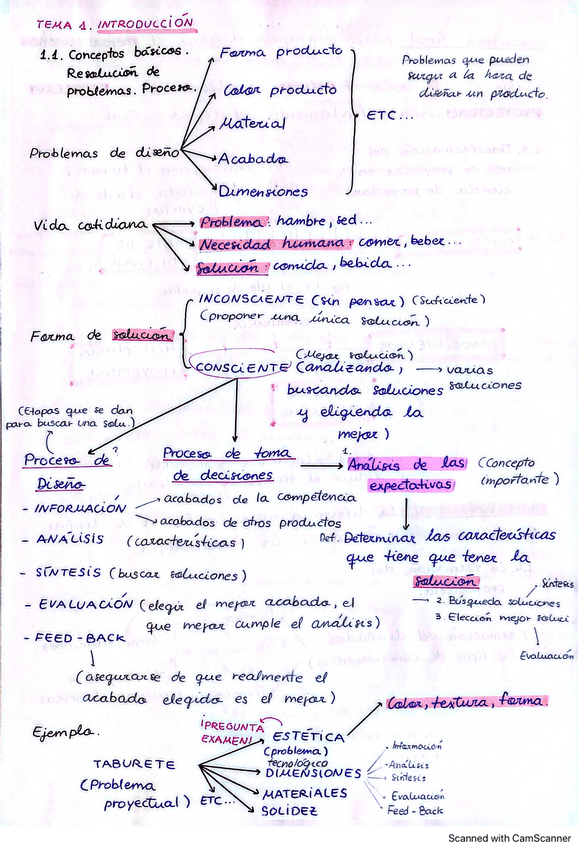 TEMA 1. INTRODUCCIÓN
1.1. Conceptos básicos.
Resolución de
problemas. Proceso.
Problemas de diseño
Forma producto
Color producto
Material
Acabado
Dimensiones
ETC...
Problemas que pueden
surgir a la hora de
diseñar un producto.
Vida cotidiana
Problema: hambre, sed...
Necesidad humana: comer, beber...
Solución: comida, bebida...
Forma de solución
INCONSCIENTE (sin pensar) (Suficiente)
(proponer una única solución)
(Mejor solución)
CONSCIENTE (analizando,
buscando soluciones
y eligiendo la
mejor)
varias
soluciones
(Etapas que se dan
para buscar una solu.)
?
Proceso de
Diseño
- INFORMACIÓN
acabados de la competencia
acabados de otros productos
- ANÁLISIS (características)
- SÍNTESIS (buscar soluciones)
- EVALUACIÓN (elegir el mejor acabado, el
que mejor cumple el análisis)
- FEED-BACK
(asegurarse de que realmente el
acabado elegido es el mejor)
Proceso de toma
de decisiones
1.
Análisis de las
expectativas
(Concepto
importante)
Def. Determinar las características
que tiene que tener la
solución
2. Búsqueda soluciones
Síntesis
3. Elección mejor soluci.
Evaluación
Ejemplo.
TABURETE
(Problema
proyectual)
¡PREGUNTA
EXAMEN!
ESTÉTICA
(problema)
tecnológico
Color, textura, forma.
DIMENSIONES
MATERIALES
SOLIDEZ
ETC...
- Información
- Análisis
- Síntesis
- Evaluación
- Feed-Back
Scanned with CamScanner